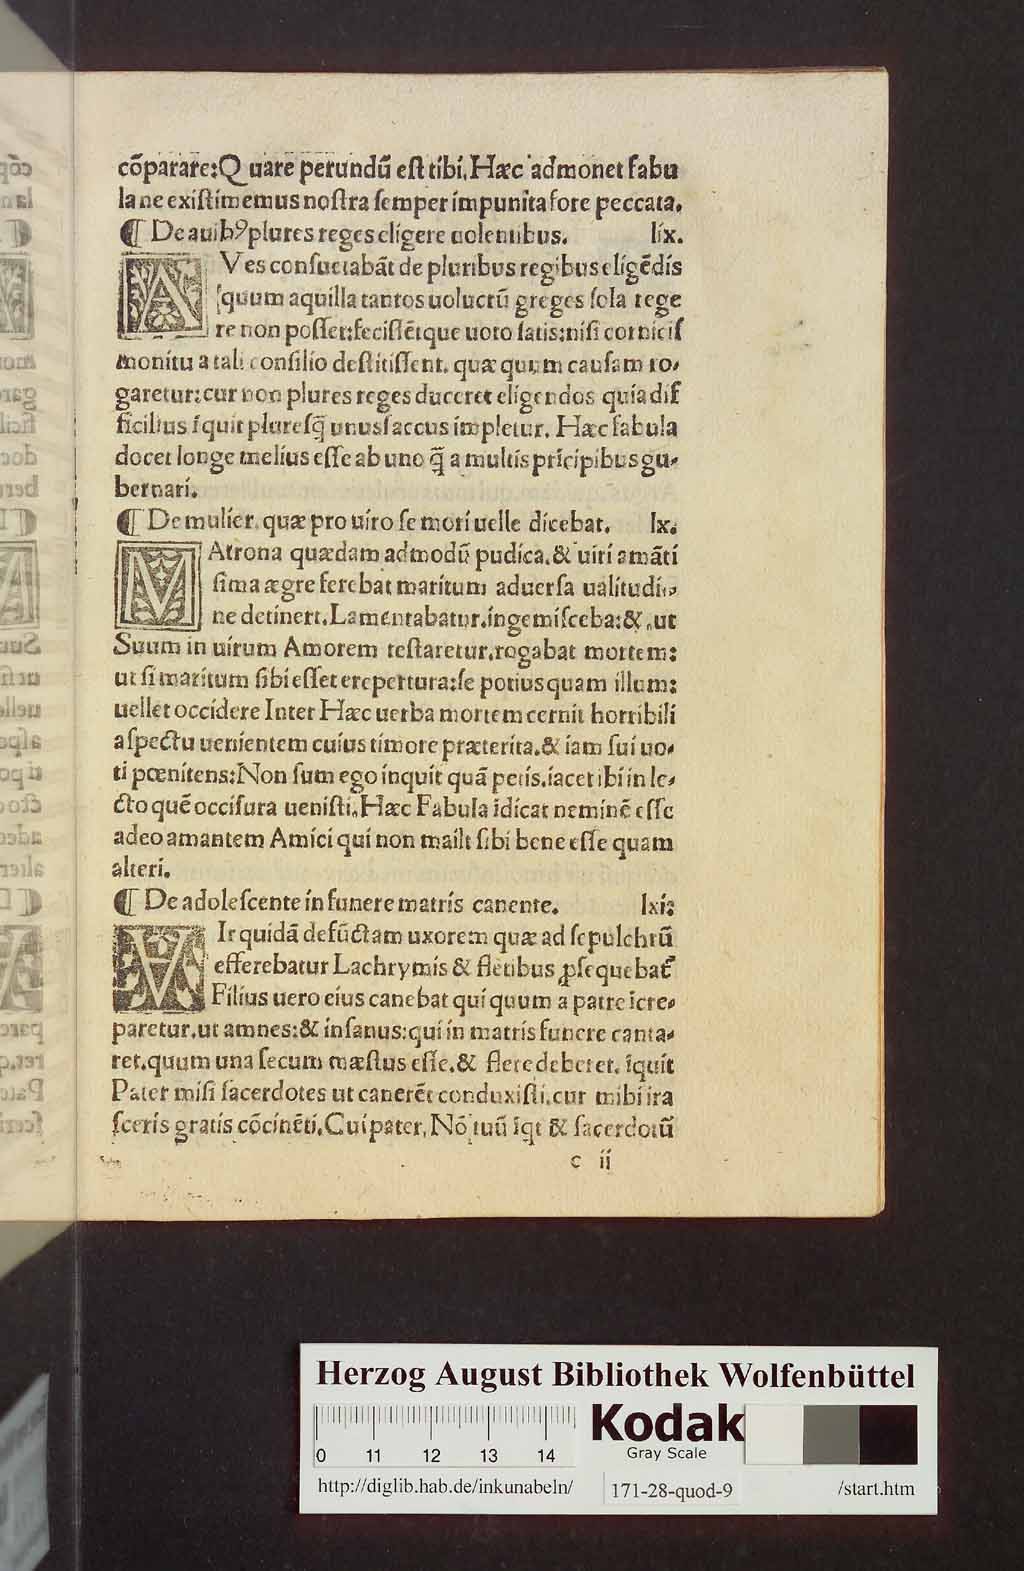 cōparare:Quare perundū eſt tibi.Hæc admonet fabu
la ne exiſtimemus noſtra ſemper impunita fore peccata.
¶ De auibꝰ plures reges eligere uolentibus. lix.
AVes conſuctabāt de pluribus regibus eligēdis
quum aquilla tantos uolucrū greges ſola rege
re non poſſet:feciſſētque uoto ſatis:niſi cornicis
monitu a tali conſilio deſtitiſſent. quæ quum cauſam ro-
garetur:cur non plures reges duceret eligendos quia dif
ficilius īquit plureſq̄ unus ſaccus impletur. Hæc fabula
docet longe melius eſſe ab uno q̄ a multis pricipibus gu-
bernari.
¶ De mulier. quæ pro uiro ſe mori uelle dicebat. lx.
MAtrona quædam admodū pudica.& uiri amāti
ſima ægre ferebat maritum aduerſa ualitudi-
ne detineri.Lamentabatur.ingemiſceba:&.ut
Suum in uirum Amorem teſtaretur.rogabat mortem:
ut ſi maritum ſibi eſſet erepertura:ſe potius quam illum:
uellet occidere Inter Hæc uerba mortem cernit horribili
aſpectu uenientem cuius timore præterita.& iam ſui uo-
ti pœnitens:Non ſum ego inquit quā petis.iacet ibi in le-
cto quē occiſura ueniſti.Hæc Fabula idicat neminē eſſe
adeo amantem Amici qui non mailt ſibi bene eſſe quam
alteri.
¶ De adoleſcente in funere matris canente. lxi:
VIr quidā defūctam uxorem quæ ad ſepulchrū
efferebatur Lachrymis & fletibus ꝓſequebat᷑
Filius uero eius canebat qui quum a patre īcre-
paretur.ut amnes:& inſanus:qui in matris funere canta-
ret.quum una ſecum mæſtus eſſe.& flere deberet. īquit
Pater miſi ſacerdotes ut canerēt conduxiſti.cur mihi ira
ſceris gratis cōcinēti.Cui pater.Nō tuū īqt & ſacerdotū
c ii
Herzog August Bibliothek Wolfenbüttel
Kodak
Gray Scale
0 11 12 13 14
http://diglib.hab.de/inkunabeln/ 171-28-quod-9 /start.htm